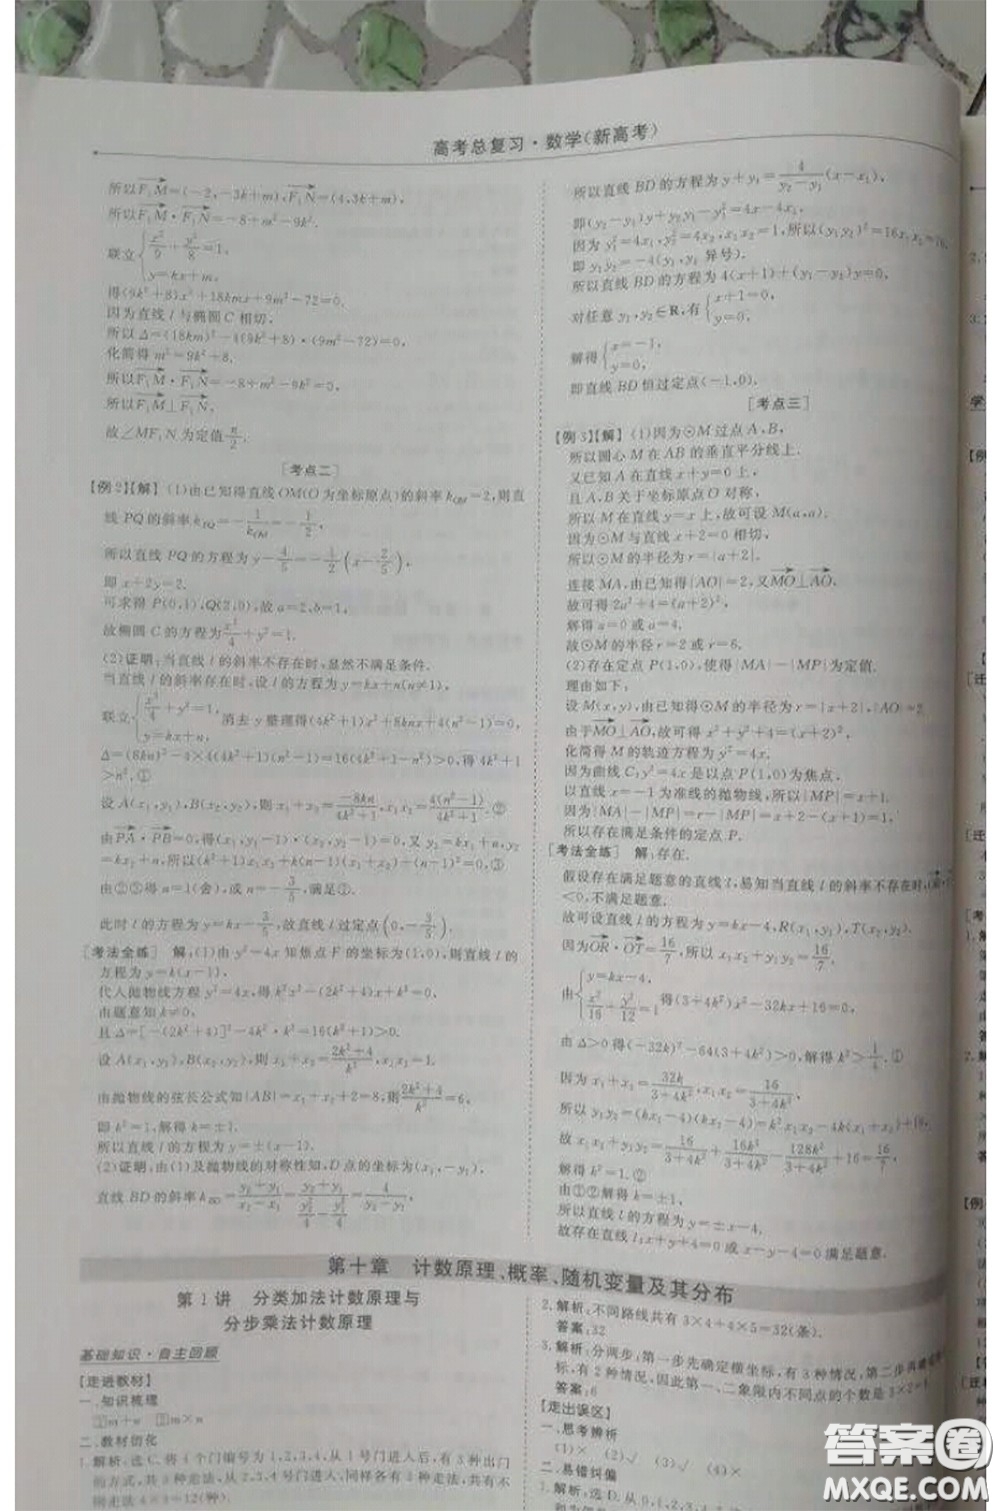 高考总复习·数学(新高考)
所以F₁M=(-2,-3k+m),F₁N=(4,3k+m),
所以F₁M·F₁N=-8+m²-9k².
联立{x²/9+y²/8=1,
y=kx+m,
得(9k²+8)x²+18kmx+9m²-72=0.
因为直线l与椭圆C相切,
所以Δ=(18km)²-4(9k²+8)·(9m²-72)=0.
化简得m²=9k²+8.
所以F₁M·F₁N=-8+m²-9k²=0,
所以F₁M⊥F₁N,
故∠MF₁N为定值π/2.
[考点二]
【例2】【解】 (1)由已知得直线OM(O为坐标原点)的斜率k_OM=2,则直
线PQ的斜率k_PQ=-1/k_OM=-1/2,
所以直线PQ的方程为y-4/5=-1/2(x-2/5),
即x+2y=2.
可求得P(0,1),Q(2,0),故a=2,b=1,
故椭圆C的方程为x²/4+y²=1.
(2)证明:当直线l的斜率不存在时,显然不满足条件.
当直线l的斜率存在时,设l的方程为y=kx+n(n≠1),
联立{x²/4+y²=1,
y=kx+n,
消去y整理得(4k²+1)x²+8knx+4(n²-1)=0,
Δ=(8kn)²-4×4(4k²+1)(n²-1)=16(4k²+1-n²)>0,得4k²+1
>n².①
设A(x₁,y₁),B(x₂,y₂),x₁+x₂=-8kn/4k²+1,x₁x₂=4(n²-1)/4k²+1.②
由PA·PB=0,得(x₁,y₁-1)·(x₂,y₂-1)=0,又y₁=kx₁+n,y₂=
kx₂+n,所以(k²+1)x₁x₂+k(n-1)(x₁+x₂)+(n-1)²=0,③
由②③得n=1(舍),或n=-3/5,满足①.
此时l的方程为y=kx-3/5,故直线l过定点(0,-3/5).
[考法全练] 解:(1)由y²=4x知焦点F的坐标为(1,0),则直线l的
方程为y=k(x-1),
代入抛物线方程y²=4x,得k²x²-(2k²+4)x+k²=0,
由题意知k≠0,
且Δ=[-(2k²+4)]²-4k²·k²=16(k²+1)>0.
设A(x₁,y₁),B(x₂,y₂),则x₁+x₂=2k²+4/k²,x₁x₂=1.
由抛物线的弦长公式知|AB|=x₁+x₂+2=8,则2k²+4/k²=6,
即k²=1,解得k=±1.
所以直线l的方程为y=±(x-1).
(2)证明:由(1)及抛物线的对称性知,D点的坐标为(x₁,-y₁),
直线BD的斜率k_BD=y₂+y₁/x₂-x₁=y₂+y₁/(y₂²/4-y₁²/4)=4/y₂-y₁,
所以直线BD的方程为y+y₁=4/y₂-y₁(x-x₁),
即(y₂-y₁)y+y₂y₁-y₁²=4x-4x₁.
因为y₁²=4x₁,y₂²=4x₂,x₁x₂=1,所以(y₁y₂)²=16x₁x₂=16,
即y₁y₂=-4(y₁,y₂异号).
所以直线BD的方程为4(x+1)+(y₁-y₂)y=0,
对任意y₁,y₂∈R,有{x+1=0,
y=0,
解得{x=-1,
y=0,
即直线BD恒过定点(-1,0).
[考点三]
【例3】【解】 (1)因为⊙M过点A,B,
所以圆心M在AB的垂直平分线上.
又已知A在直线x+y=0上,
且A,B关于坐标原点O对称,
所以M在直线y=x上,故可设M(a,a).
因为⊙M与直线x+2=0相切,
所以⊙M的半径为r=|a+2|.
连接MA,由已知得|AO|=2,又MO⊥AO,
故可得2a²+4=(a+2)²,
解得a=0或a=4.
故⊙M的半径r=2或r=6.
(2)存在定点P(1,0),使得|MA|-|MP|为定值.
理由如下:
设M(x,y),由已知得⊙M的半径为r=|x+2|,|AO|=2
由于MO⊥AO,故可得x²+y²+4=(x+2)²,
化简得M的轨迹方程为y²=4x.
因为曲线C:y²=4x是以点P(1,0)为焦点,
以直线x=-1为准线的抛物线,所以|MP|=x+1.
因为|MA|-|MP|=r-|MP|=x+2-(x+1)=1,
所以存在满足条件的定点P.
[考法全练] 解:存在.
假设存在满足题意的直线l,易知当直线l的斜率不存在时,
<0,不满足题意.
故可设直线l的方程为y=kx-4,R(x₁,y₁),T(x₂,y₂).
因为OR·OT=16/7,所以x₁x₂+y₁y₂=16/7.
由{y=kx-4,
x²/16+y²/12=1
得(3+4k²)x²-32kx+16=0,
由Δ>0得(-32k)²-64(3+4k²)>0,解得k²>1/4.①
因为x₁+x₂=32k/3+4k²,x₁x₂=16/3+4k²,
所以y₁y₂=(kx₁-4)(kx₂-4)=k²x₁x₂-4k(x₁+x₂)+16,
故x₁x₂+y₁y₂=16/3+4k²+16k²/3+4k²-128k²/3+4k²+16=16/7,
解得k²=1.②
由①②解得k=±1,
所以直线l的方程为y=±x-4.
故存在直线l:x+y+4=0或x-y-4=0满足题意.
第十章 计数原理、概率、随机变量及其分布
第1讲 分类加法计数原理与
分步乘法计数原理
基础知识·自主回顾
[走进教材]
一、知识梳理
①m+n ②m×n
二、教材衍化
1.解析:选C.将4个门编号为1,2,3,4,从1号门进入后,有3种出门
的方式,共3种走法,从2,3,4号门进入,同样各有3种走法,共有不同
走法4×3=12(种).
2.解析:不同路线共有3×4+4×5=32(条).
答案:32
3.解析:分两步:第一步先确定横坐标,有3种情况,第二步再确定纵坐
标,有2种情况,因此第一、二象限内不同点的个数是3×2=6.
答案:6
[走出误区]
一、思考辨析
(1)× (2)√
二、易错纠偏
1.解析:选D.
答案圈
MXQE.COM